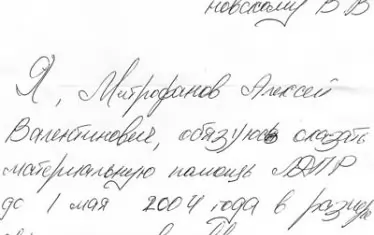 новскому В В
Я, Митрофанов Алексей
Валентинович, обязуюсь оказать
материальную помощь ЛДПР
до 1 мая 2004 года в размере